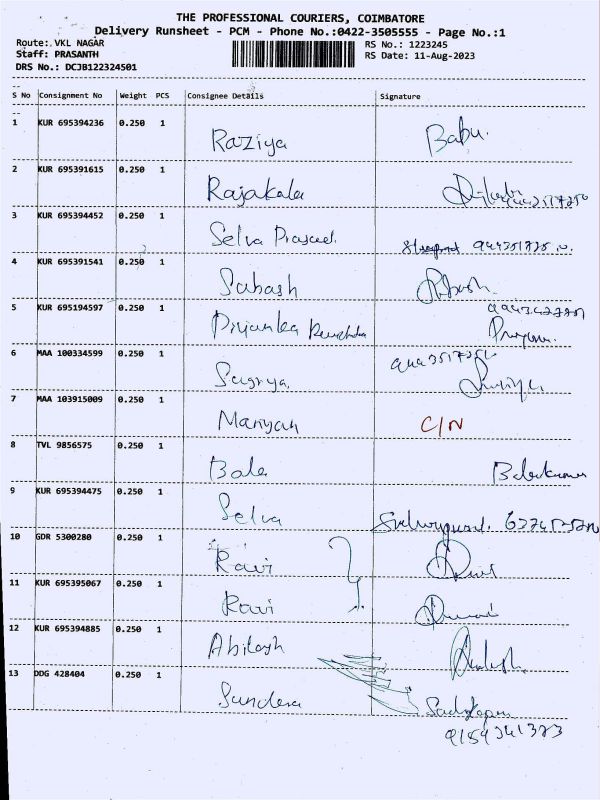 THE PROFESSIONAL COURIERS, COIMBATORE
Delivery Runsheet - PCM - Phone No.:0422-3505555 - Page No.:1
Route: VKL NAGAR
RS No.: 1223245
Staff: PRASANTH
RS Date: 11-Aug-2023
DRS No.: DCJB122324501
S No Consignment No Weight PCS Consignee Details Signature
1 KUR 695394236 0.250 1 Raziya Babu.
2 KUR 695391615 0.250 1 Rajakala
3 KUR 695394452 0.250 1 Selva Prasad
4 KUR 695391541 0.250 1 Subash
5 KUR 695194597 0.250 1 Priyanka
6 MAA 100334599 0.250 1
7 MAA 103915009 0.250 1 Mariyah C/N
8 TVL 9856575 0.250 1 Bala Balakumar
9 KUR 695394475 0.250 1 Selva
10 GDR 5300280 0.250 1 Ravi
11 KUR 695395067 0.250 1 Ravi
12 KUR 695394885 0.250 1 Abilash
13 DDG 428404 0.250 1 Sundera
9159341373